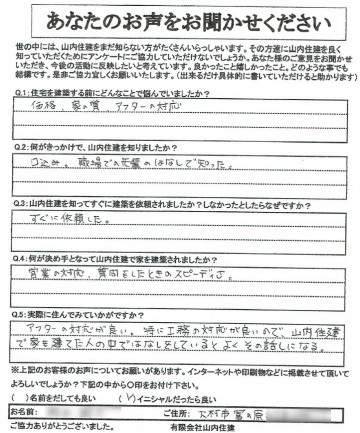 あなたのお声をお聞かせください
世の中には、山内住建をまだ知らない方がたくさんいらっしゃいます。その方達に山内住建を良く
知っていただくためにアンケートにご協力していただけないでしょうか。あなた様のご意見をお聞かせ
いただき、今後の活動に反映したいと考えています。良かったこと嬉しかったこと。どのような事でも
結構です。是非ご協力宜しくお願いいたします。(出来るだけ具体的に書いていただけると助かります)
Q.1:住宅を建築する前にどんなことで悩んでいましたか?
価格、家の質、アフターの対応
Q.2:何がきっかけで、山内住建を知りましたか?
口込み、職場での先輩のはなしで知った。
Q.3:山内住建を知ってすぐに建築を依頼されましたか?しなかったとしたらなぜですか?
すぐに依頼した。
Q.4:何が決め手となって山内住建で家を建築されましたか?
営業の対応、質問をしたときのスピーディさ。
Q.5:実際に住んでみていかがですか?
アフターの対応が良い。特に工務の対応が良いので、山内住建
で家を建てた人の中ではなしをしているとよくその話しになる。
※上記のお客様のお声についてお願いがあります。インターネットや印刷物などに掲載させて頂いて
よろしいでしょうか?下記の中から〇印をお付け下さい。
( )名前をだしても良い (〇)イニシャルだったら良い
お名前: ご住所: 大村市富の原
ご協力ありがとうございました。 有限会社山内住建